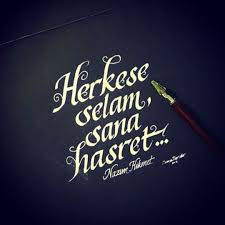 Herkese
selam,
sana
hasret...
Nazım Hikmet